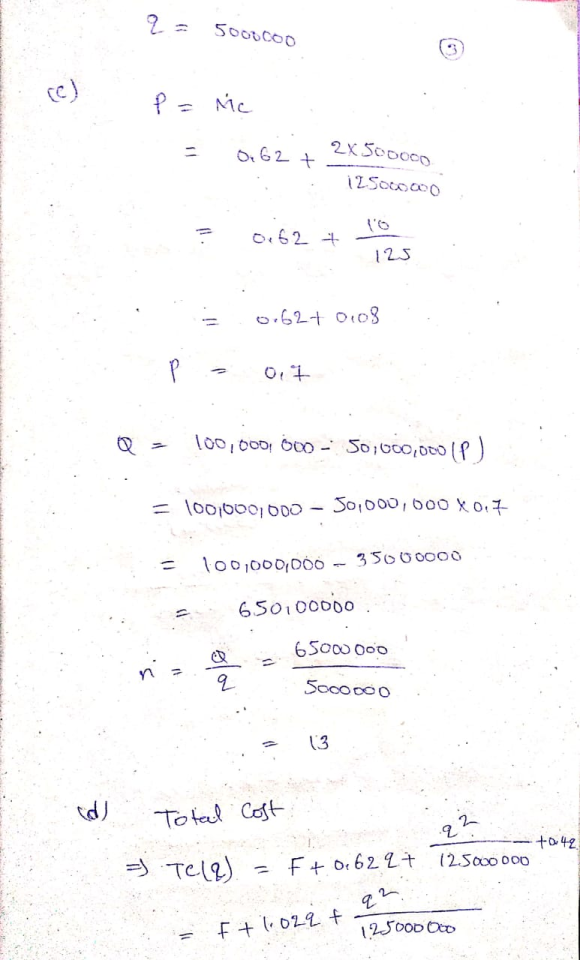 q = 5000000
(3)
(c)
P = MC
= 0.62 + 2X500000 / 125000000
= 0.62 + 10 / 125
= 0.62 + 0.08
P = 0.7
Q = 100,000,000 - 50,000,000 (P)
= 100,000,000 - 50,000,000 X 0.7
= 100,000,000 - 35000000
= 650,00000.
n = Q / q = 65000000 / 5000000
= 13
(d) Total Cost
⇒ TC(q) = F + 0.62q + q² / 125000000 + 0.4q
= F + 1.02q + q² / 125000000